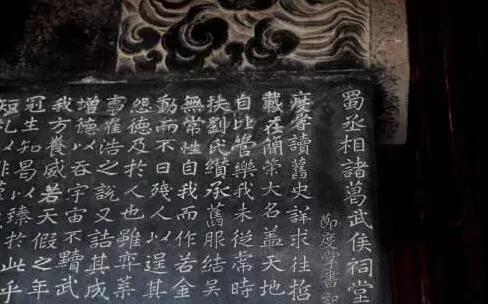 蜀丞相諸葛武侯祠堂
節度掌書記
度嘗讀舊史詳求往哲
載在簡策大名蓋天地
自比管樂我未從常時
扶劉氏纘承舊服結吳
無常性自我而作若金
動而不日殘人以逞其
怨德及於人也雖弃
書崔浩之說又詰其成
增德以吞宇宙不黷武
我方養威若天假之年
冠生知曷以臻於此乎
短